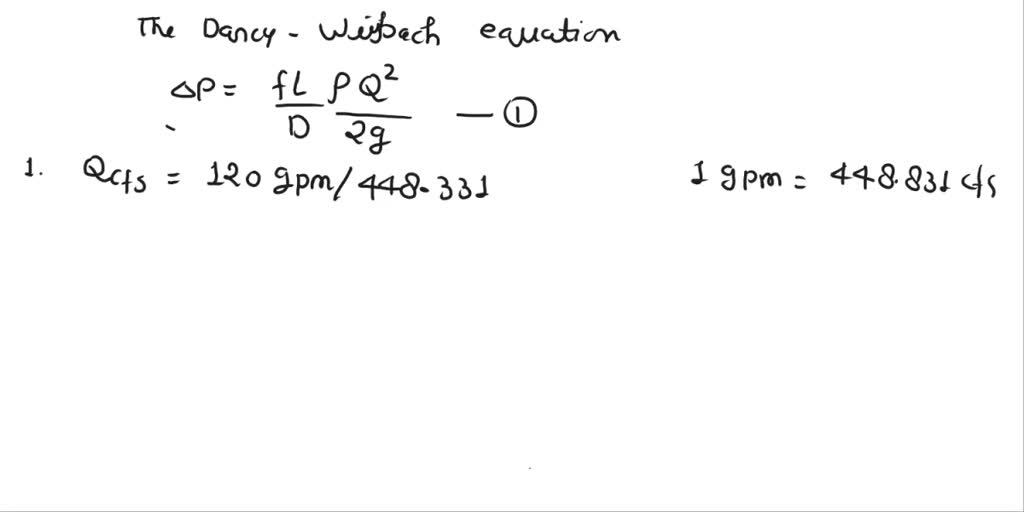 The Dancy - Weisbach equation
ΔP = fL/D ρQ²/2g — ①
1. Qcfs = 120 gpm/448.331 1 gpm = 448.831 cfs